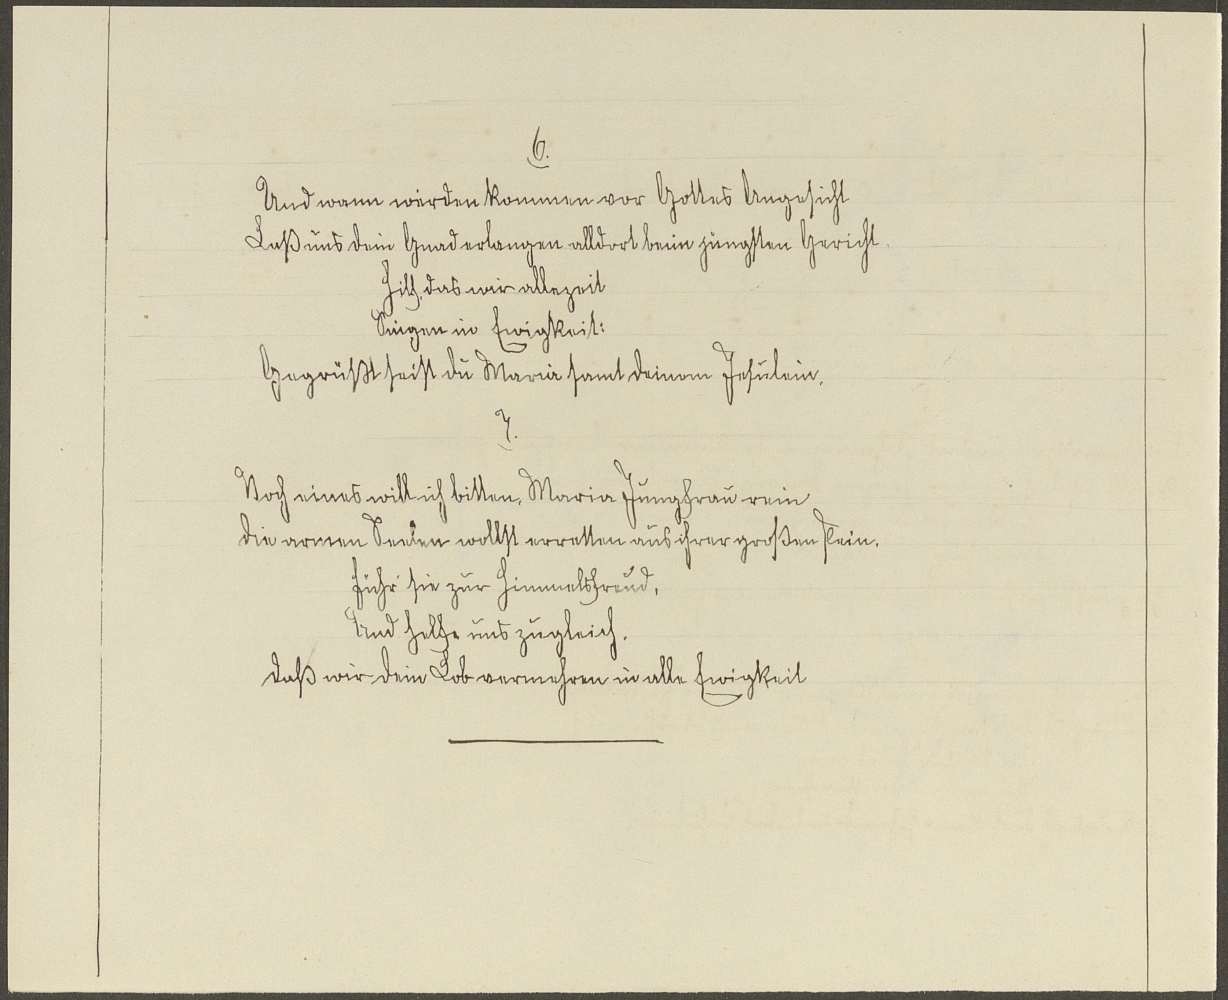 6.
Und wann wirden kommen vor Gottes Angesicht
Laß uns dein Gnad erlangen alldort beim jüngsten Gericht.
Hilf, das wir allezeit
Singen in Ewigkeit:
Gegrüßt seist du Maria samt deinem Jesulein.
7.
Noch eines will ich bitten, Maria Jungfrau rein
die armen Seelen wollst erretten aus ihrer großen Pein.
führ' sie zur Himmelsfreud,
Und helfe uns zugleich.
daß wir dein Lob vermehren in alle Ewigkeit